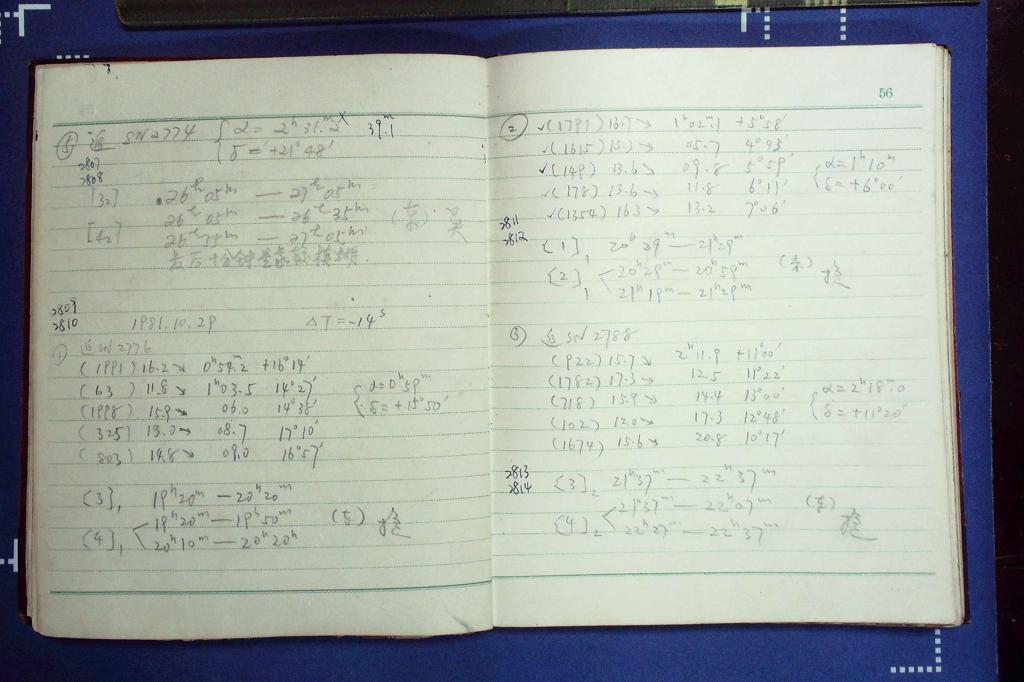 ⑤ 追 SN2774 { α = 2ʰ31.ᵐ2 × 39ᵐ.1
δ = +21°48′
2807
2808
[3₂] 26ʰ05ᵐ — 27ʰ05ᵐ
26ʰ05ᵐ — 26ʰ35ᵐ
[4₂] 26ʰ55ᵐ — 27ʰ05ᵐ
最后十分钟星象较模糊.
2809
2810 1981.10.29 ΔT = -14ˢ
① 追SN2776
(1991) 16.2↘ 0ʰ54.ᵐ2 +16°14′
(63) 11.8↘ 1ʰ03.5 14°27′
(1998) 15.9↘ 06.0 14°38′
(325) 13.0↘ 08.7 17°10′
(803) 14.8↘ 09.0 16°57′
{ α = 0ʰ59ᵐ
δ = +15°50′
[3]₁ 19ʰ20ᵐ — 20ʰ20ᵐ
19ʰ20ᵐ — 19ʰ50ᵐ
[4]₁ 20ʰ10ᵐ — 20ʰ20ʰ
56
② ✓(1791) 16.7↘ 1ʰ02ᵐ.1 +5°58′
✓(1615) 15.3↘ 05.7 4°43′
✓(149) 13.6↘ 09.8 5°59′
✓(178) 13.6↘ 11.8 6°11′
✓(1354) 16.3↘ 13.2 7°06′
{ α = 1ʰ10ᵐ
δ = +6°00′
2811
2812
[1]₁ 20ʰ29ᵐ — 21ʰ29ᵐ
[2]₁ 20ʰ29ᵐ — 20ʰ59ᵐ
21ʰ19ᵐ — 21ʰ29ᵐ
③ 追SN2788
(922) 15.7↘ 2ʰ11.9 +11°00′
(1782) 17.3↘ 12.5 11°22′
(718) 15.9↘ 14.4 13°00′
(102) 12.0↘ 17.3 12°48′
(1674) 15.6↘ 20.8 10°17′
{ α = 2ʰ18ᵐ.0
δ = +11°20′
2813
2814
[3]₂ 21ʰ37ᵐ — 22ʰ37ᵐ
21ʰ37ᵐ — 22ʰ07ᵐ
[4]₂ 22ʰ27ᵐ — 22ʰ37ᵐ